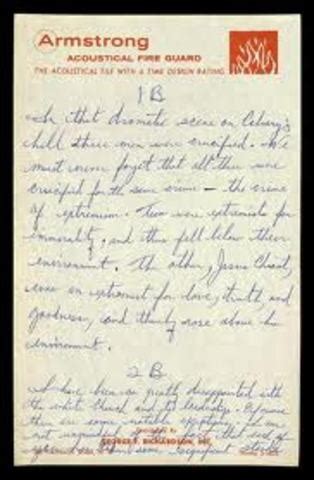 Armstrong
ACOUSTICAL FIRE GUARD
THE ACOUSTICAL TILE WITH A TIME DESIGN RATING
1 B
In that dramatic scene on Calvary's
hill three men were crucified. We
must never forget that all three were
crucified for the same crime — the crime
of extremism. Two were extremists for
immorality, and thus fell below their
environment. The other, Jesus Christ,
was an extremist for love, truth, and
goodness, and thereby rose above his
environment.
2 B
I have been so greatly disappointed with
the white church and its leadership. Of course
there are some notable exceptions. I am
not unmindful of the fact that each of
GEORGE E. RICHARDSON, INC.
some significant stands